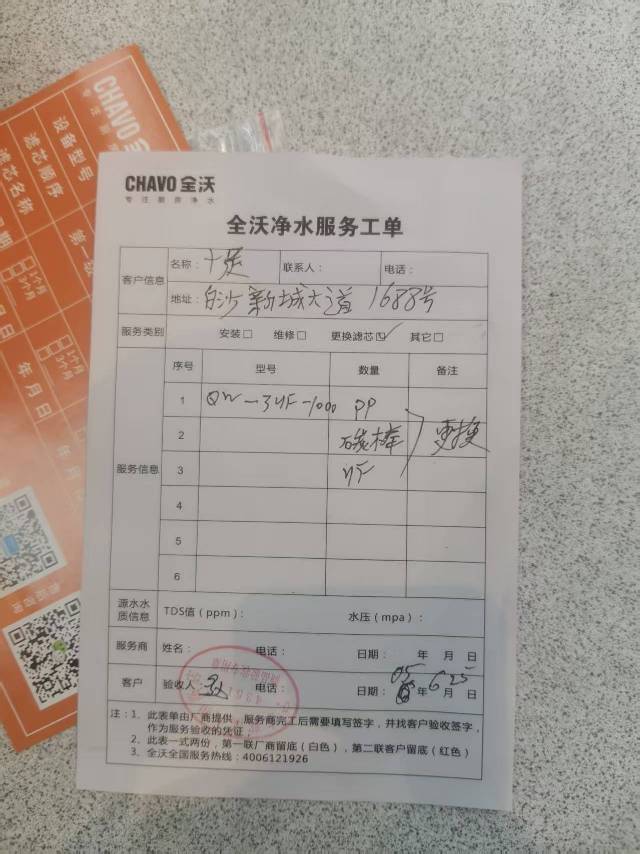 CHAVO全沃
专注厨房净水
全沃净水服务工单
客户信息 名称： 联系人： 电话：
地址：白沙新城大道1688号
服务类别 安装□ 维修□ 更换滤芯☑ 其它□
服务信息 序号 型号 数量 备注
1 QW-3UF-1000 PP
2 碳棒 更换
3 UF
4
5
6
源水水质信息 TDS值（ppm）： 水压（mpa）：
服务商 姓名： 电话： 日期： 年 月 日
客户 验收人： 电话： 日期： 年 6 月 25 日
注：1、此表单由厂商提供，服务商完工后需要填写签字，并找客户验收签字，
作为服务验收的凭证；
2、此表一式两份，第一联厂商留底（白色），第二联客户留底（红色）
3、全沃全国服务热线：4006121926
CHAVO全
设备型号
滤芯顺序
滤芯名称
第一级
□1个月
□3个月
年 月 日